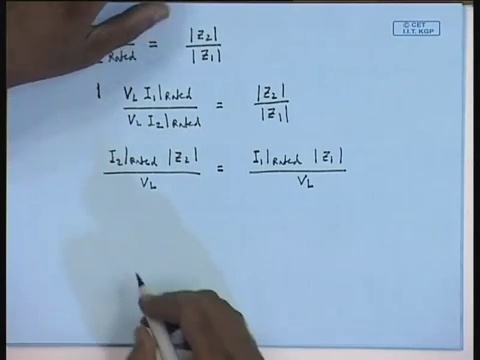 © CET
I.I.T. KGP
Rated = |Z2| / |Z1|
VL I1|Rated / VL I2|Rated = |Z2| / |Z1|
I2|Rated |Z2| / VL = I1|Rated |Z1| / VL